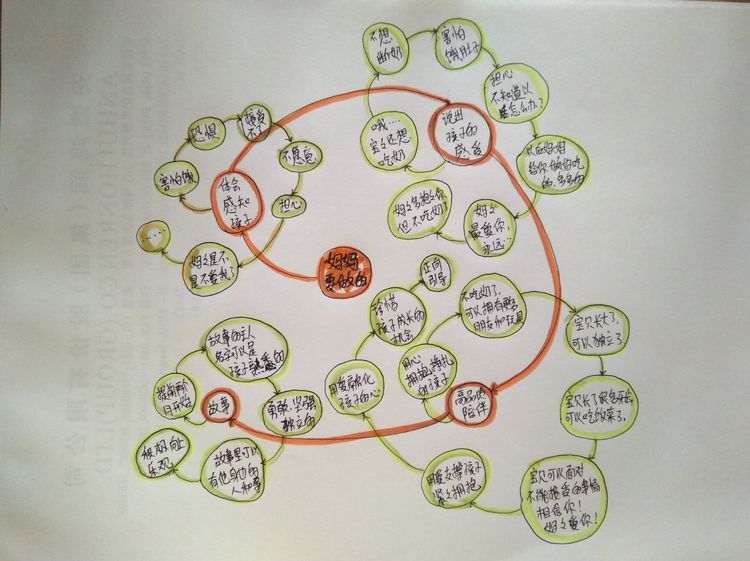 妈妈
要做的
体会
感知
孩子
害怕饿
恐惧
接受
不了
不愿意
担心
妈妈是不
是不爱我了
......
说出
孩子的
感受
哦...
宝宝还想
吃奶
不想
断奶
害怕
饿肚子
担心
不知道以
后怎么办?
以后妈妈
给你做好吃
的,多多的
妈妈
最爱你,
永远...
妈妈多抱抱你
但不吃奶了
高品质
陪伴
用心
拥抱挣扎
的孩子
不吃奶了,
可以拥有更多
朋友和玩具
宝贝长大了,
可以独立了
宝贝长了很多牙齿,
可以吃饭菜了.
宝贝可以面对
不能接受的事情
相信你!
妈妈爱你!
用爱支撑孩子
紧紧拥抱
用爱融化
孩子的心
珍惜
孩子成长的
机会
正向
引导
故事
提前两个
月开始
故事的主人
名字可以是
孩子熟悉的
勇敢,坚强
独立的
故事里可以
有他身边的
人和事
积极向上
乐观